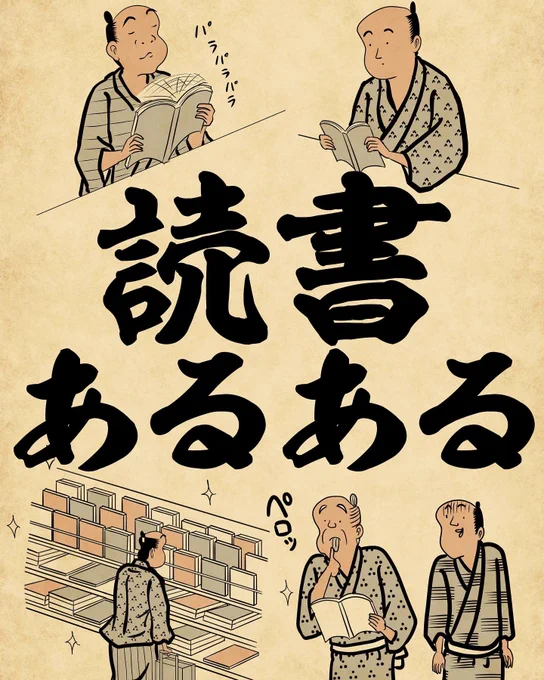 パラパラパラ
読書
あるあるある
ペロッ